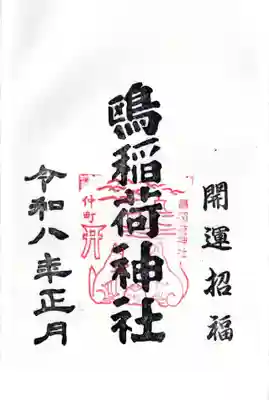 開運招福
鴎稲荷神社
仲町
令和八年正月